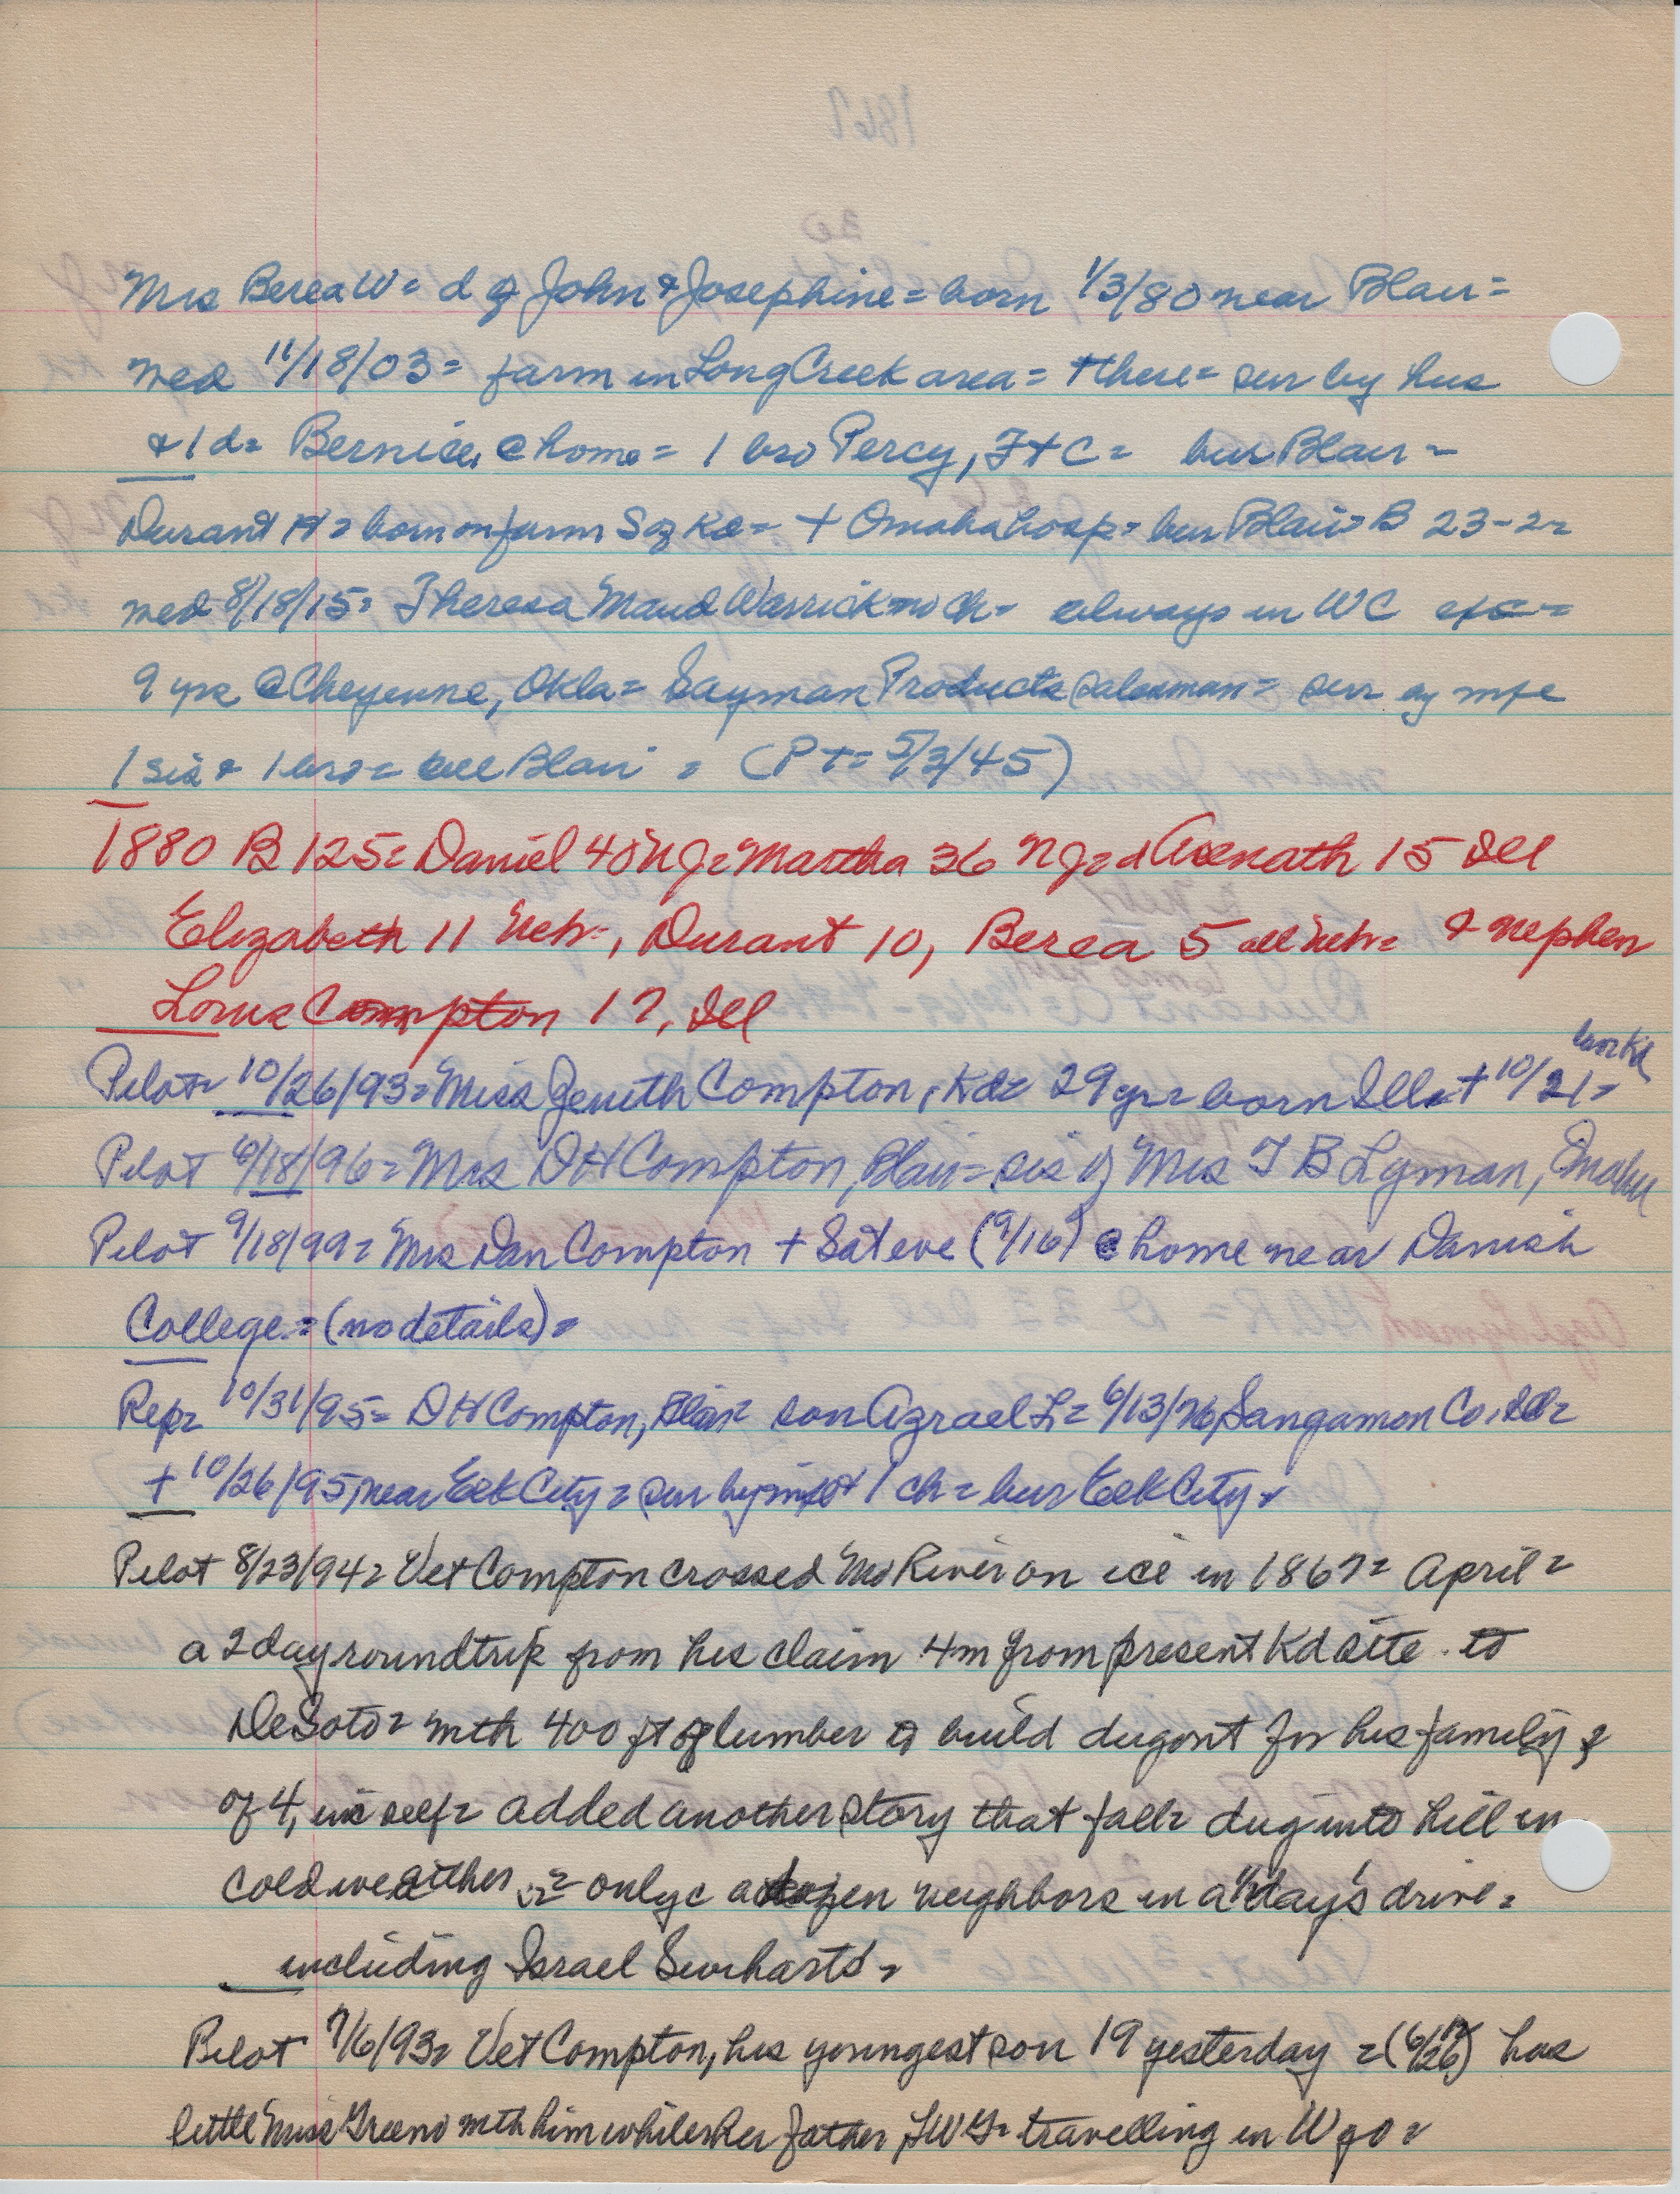 Mrs Berea W = d of John & Josephine = born 1/3/80 near Blair =
wed 11/18/03 = farm in Long Creek area = + there = sur by hus
& 1 d = Bernice, @ home = 1 bro Percy, Ft C = bur Blair -
Durant H = born on farm S of Kd = + Omaha hosp = bur Blair = B 23-2 =
wed 8/18/15 = Theresa Maud Warrick = no ch = always in WC exc =
9 yrs @ Cheyenne, Okla = Sayman Products salesman = sur by wife
1 sis & 1 bro = all Blair = (P + = 5/3/45)
1880 B 125 = Daniel 40 NJ = Martha 36 NJ = d Asenath 15 Ill
Elizabeth 11 Neb =, Durant 10, Berea 5 all Neb = & nephew
Compton 17, Ill
Pilot = 10/26/93 = Miss Zenith Compton, Kd = 29 yr = born Ill = + 10/21 =
Pilot 6/18/96 = Mrs DH Compton, Blair = sis of Mrs T B Lyman, Omaha
Pilot 9/18/99 = Mrs Dan Compton + Sat eve (9/16) @ home near Danish
College = (no details) =
Rep = 10/31/95 = DH Compton, Blair = son Azrael L = 6/13/76, Sangamon Co. Ill =
+ 10/26/95, near Elk City = sur by wife & 1 ch = bur Elk City =
Pilot 8/23/94 = Vet Compton crossed Mo River on ice in 1867 = April =
a 2 day roundtrip from his claim 4m from present Kd site to
DeSoto = with 400 ft of lumber to build dugout for his family
of 4, inc self = added another story that fall = dug into hill in
cold weather = only c a dozen neighbors in a 1/2 day's drive =
including Israel Swiharts =
Pilot 7/6/93 = Vet Compton, his youngest son 19 yesterday = has
little Miss Greeno with him while her father, LWG = travelling in Wyo =